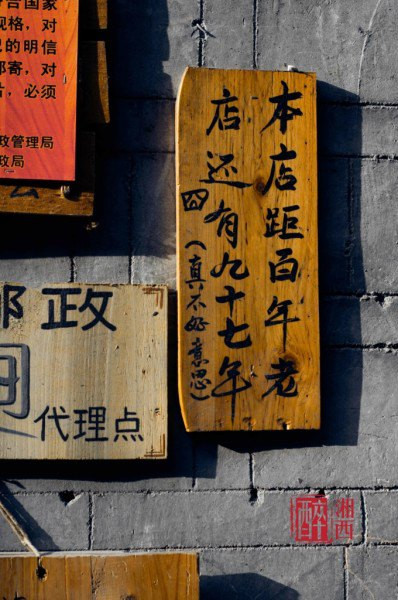 合国家
规格，对
的明信
邮寄，对
，必须
政管理局
政局
本店距百年老
店还有九十七年
（真不好意思）
邮政
代理点
醉
湘西